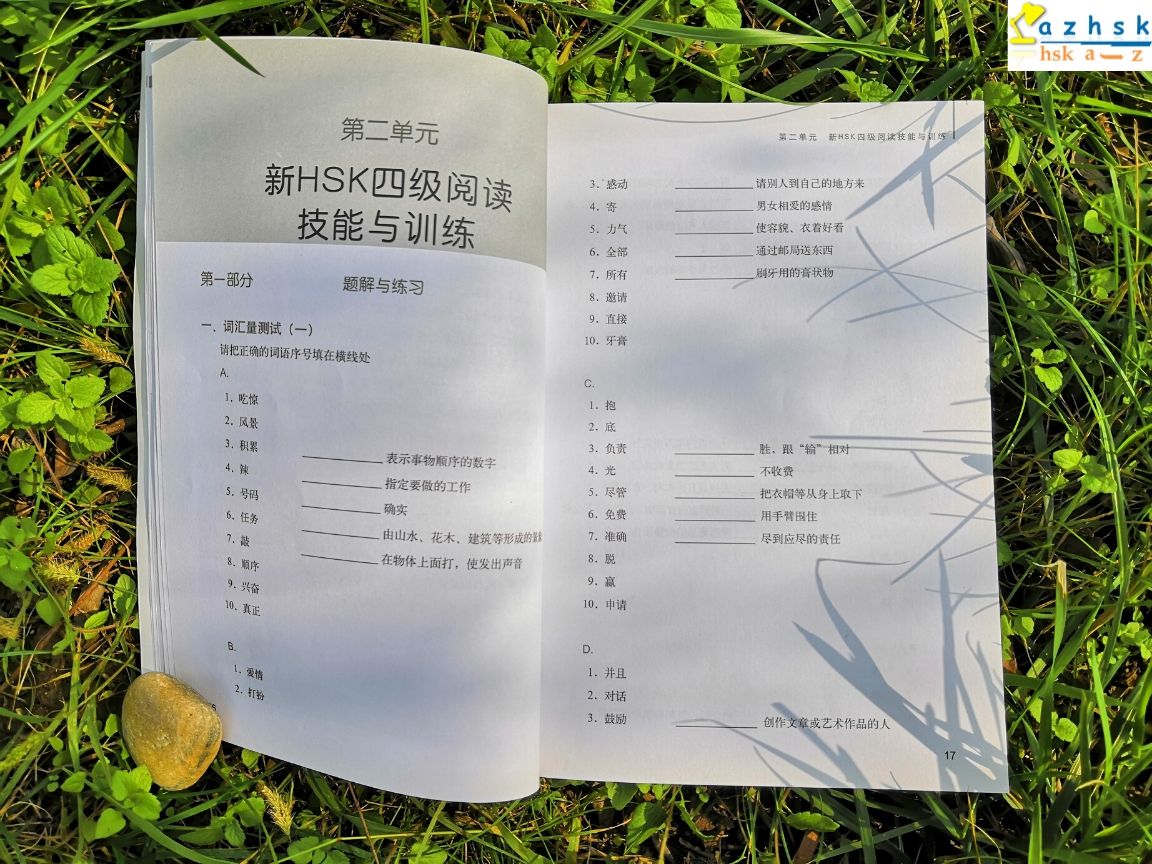 azhsk
hsk a z
第二单元
新HSK四级阅读
技能与训练
第一部分 题解与练习
一、词汇量测试（一）
请把正确的词语序号填在横线处
A.
1. 吃惊
2. 风景
3. 积累
4. 辣 ________ 表示事物顺序的数字
5. 号码 ________ 指定要做的工作
6. 任务 ________ 确实
7. 敲 ________ 由山水、花木、建筑等形成的
8. 顺序 ________ 在物体上面打，使发出声音
9. 兴奋
10. 真正
B.
1. 爱情
2. 打扮
第二单元 新HSK四级阅读技能与训练
3. 感动 ________ 请别人到自己的地方来
4. 寄 ________ 男女相爱的感情
5. 力气 ________ 使容貌、衣着好看
6. 全部 ________ 通过邮局送东西
7. 所有 ________ 刷牙用的膏状物
8. 邀请
9. 直接
10. 牙膏
C.
1. 抱
2. 底
3. 负责 ________ 胜，跟“输”相对
4. 光 ________ 不收费
5. 尽管 ________ 把衣帽等从身上取下
6. 免费 ________ 用手臂围住
7. 准确 ________ 尽到应尽的责任
8. 脱
9. 赢
10. 申请
D.
1. 并且
2. 对话
3. 鼓励 ________ 创作文章或艺术作品的人
17